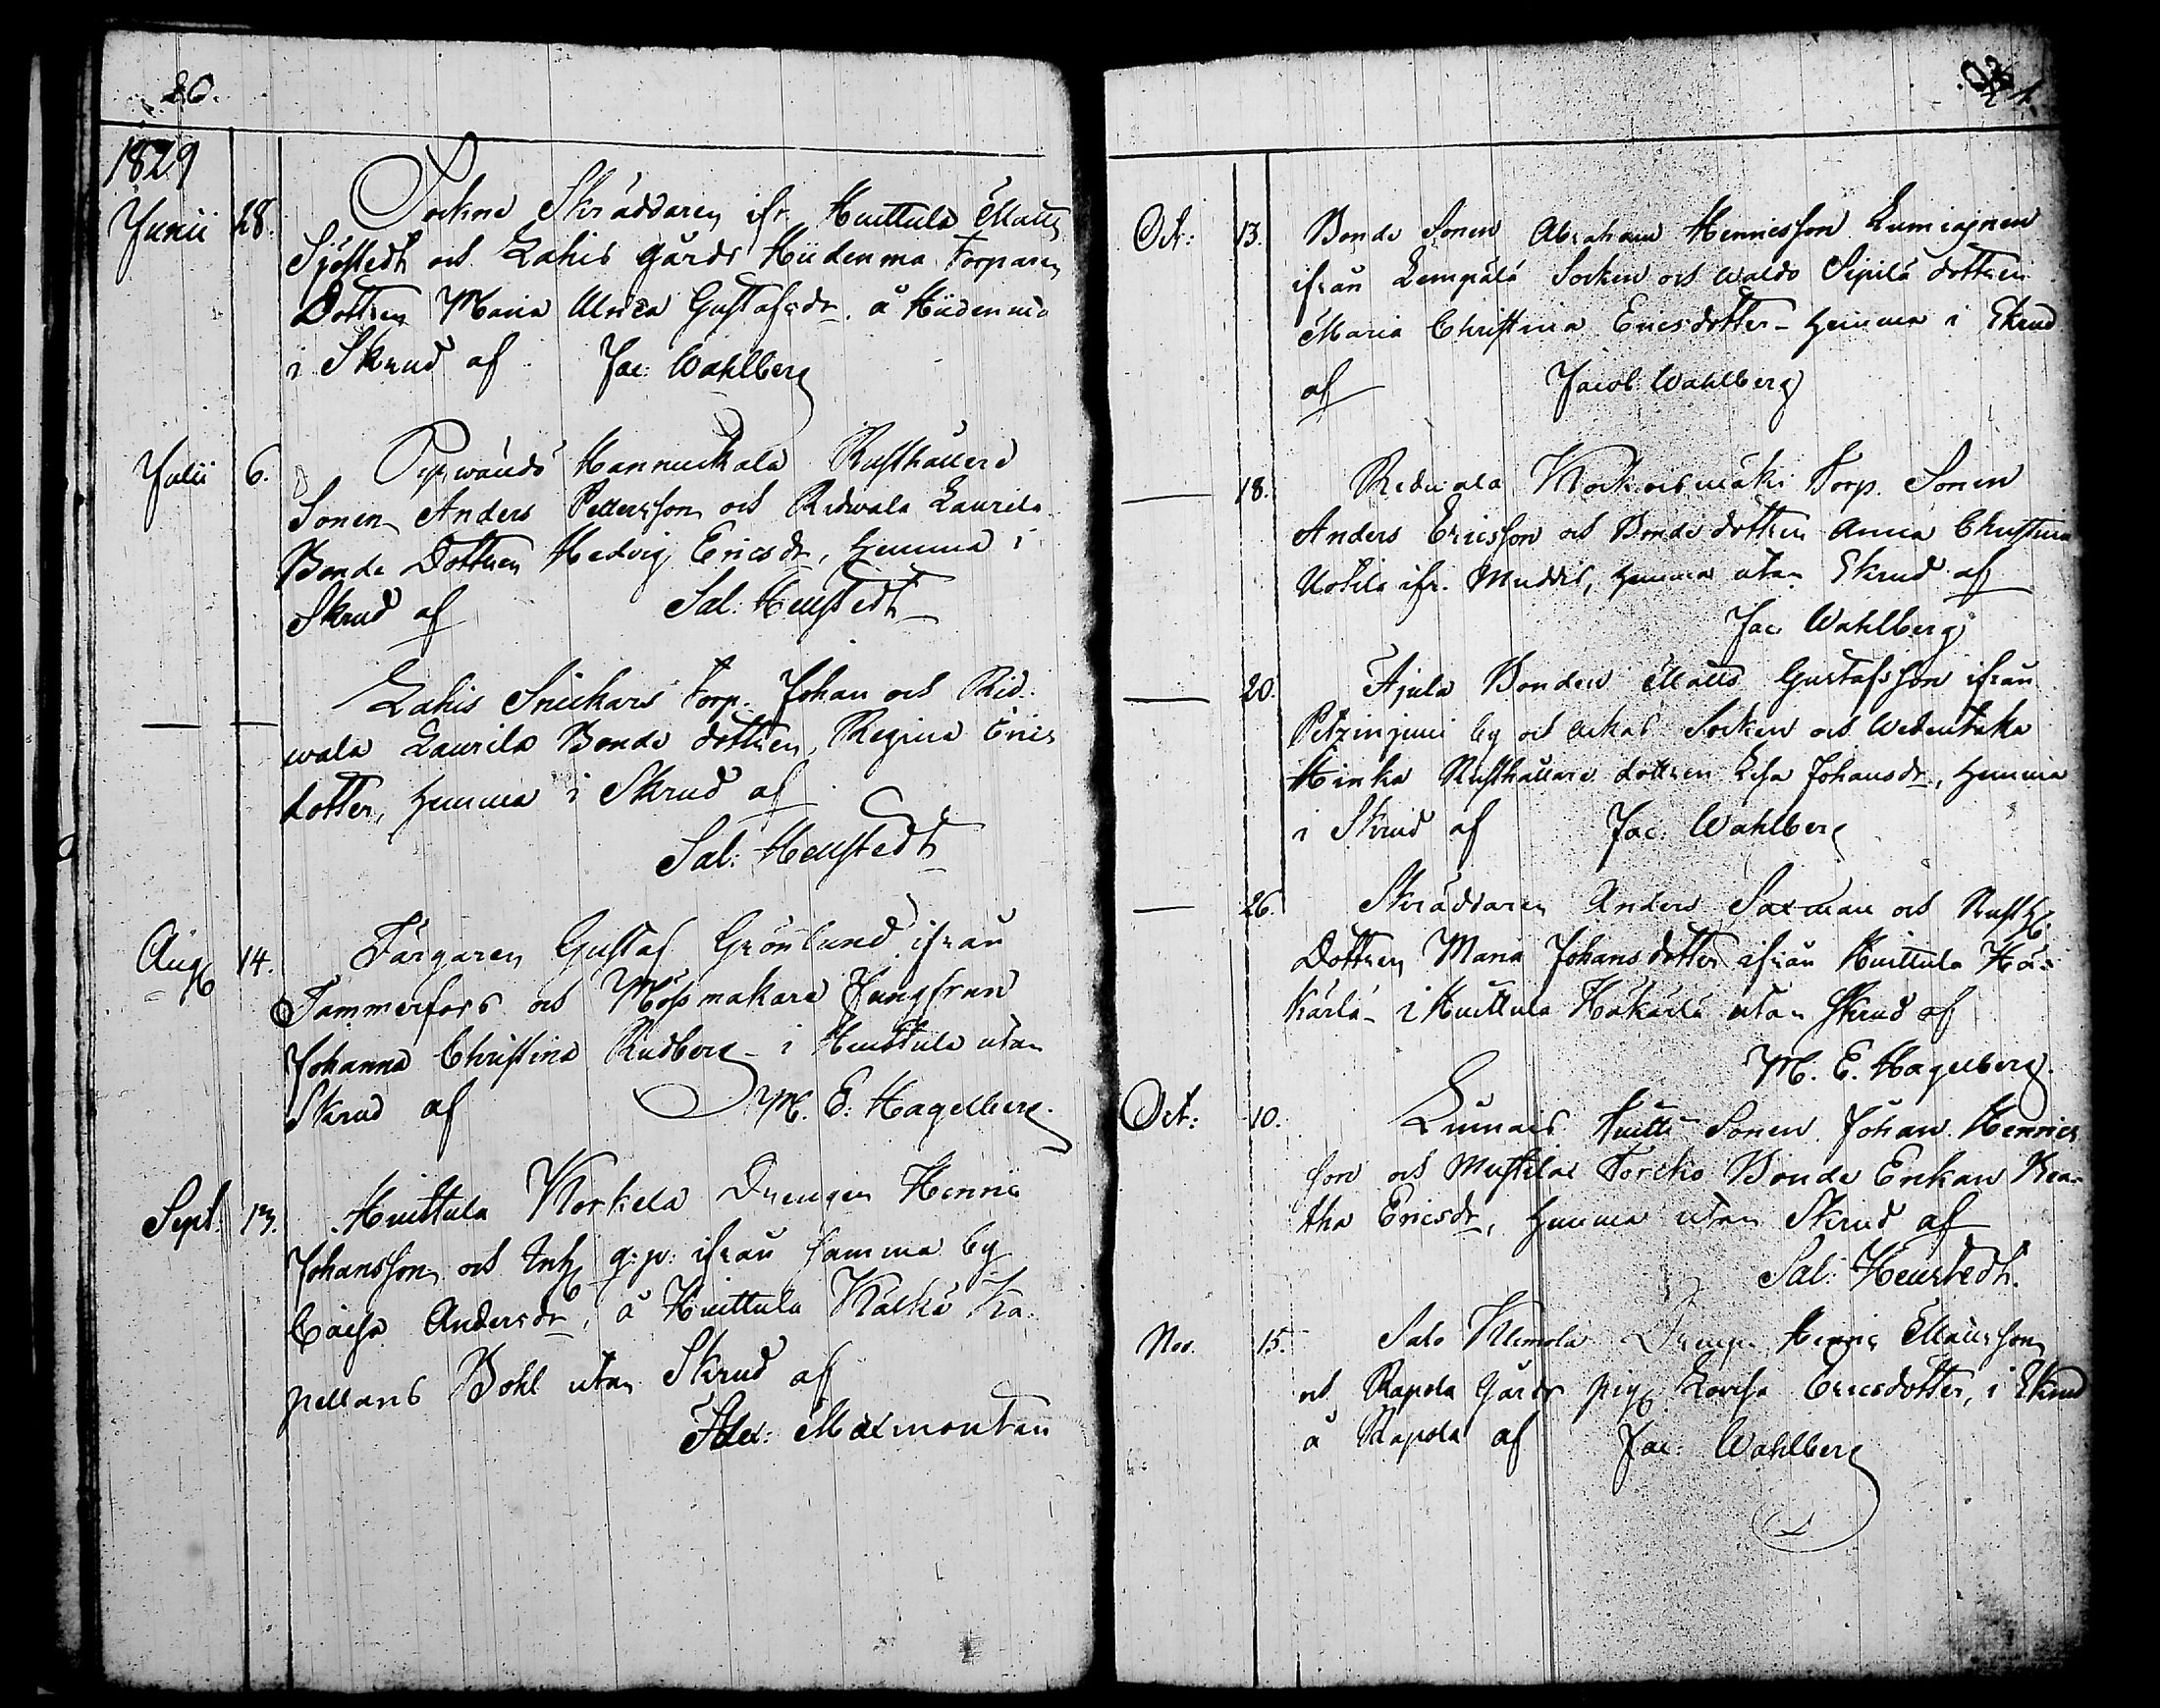 20.
1829
Junii 28. Sockne Skräddaren ifr. Huittula Matts
Sjöstedt och Lahis gårds Hiidenma Torparen
Dottren Maria Ulrica Gustafsdr. å Hiidenma
i Skrud af Jac: Wahlberg
Julii 6. Hannuckala Rusthållere
Sonen Anders Pettersson och Ridwala Laurila
Bonde Dottren Hedvig Ericsdr, hemma i
Skrud af Sal: Hellstedt
— — Lahis Snickars Torp. Johan och Rid-
wala Laurila Bonde dottren, Regina Erics
dotter, hemma i Skrud af
Sal: Hellstedt
Aug 14. Färgaren Gustaf Grönlund ifrån
Tammerfors och Mössmakare Jungfrun
Johanna Christina Rudberg - i Huittula utan
Skrud af M. E. Hagelberg.
Sept. 13. Huittula Korkela Drengen Henric
Johansson och Enk q:p: ifrån samma by
Caisa Andersdr, å Huittula Kaskis Ka-
pellans Bohl utan Skrud af
Alex: Maxmontan
21.
Oct: 13. Bonde Sonen Abraham Henricsson
ifrån Lempälä Socken och Waldo Sipilä dottren
Maria Christina Ericsdotter - hemma i Skrud
af Jacob Wahlberg
— 18. Ridwala Torp. Sonen
Anders Ericsson och Bonde dottren Anna Christina
Uotila ifr. Muddis, hemma utan Skrud af
Jac Wahlberg
— 20. Ajula Bonden Matts Gustafsson ifrån
by och Akas Socken och Wedentaka
Hinka Rusthållare dottren Lisa Johansdr, hemma
i Skrud af Jac: Wahlberg
— 26. Skräddaren Anders Saxman och Rusth.
Dottren Maria Johansdotter ifrån Huittula Hä-
kärlä - i Huittula Häkärlä utan Skrud af
M. E. Hagelberg.
Oct: 10. Lumais Huitti Sonen Johan Henrics
son och Mustila Torcko Bonde Enkan Bea-
tha Ericsdr, hemma utan Skrud af
Sal: Hellstedt.
Nov. 15. Salo Klemola Dreng. Henric Mattsson
och Rapola Gårds pig Lovisa Ericsdotter, i Skrud
å Rapola af Jac: Wahlberg